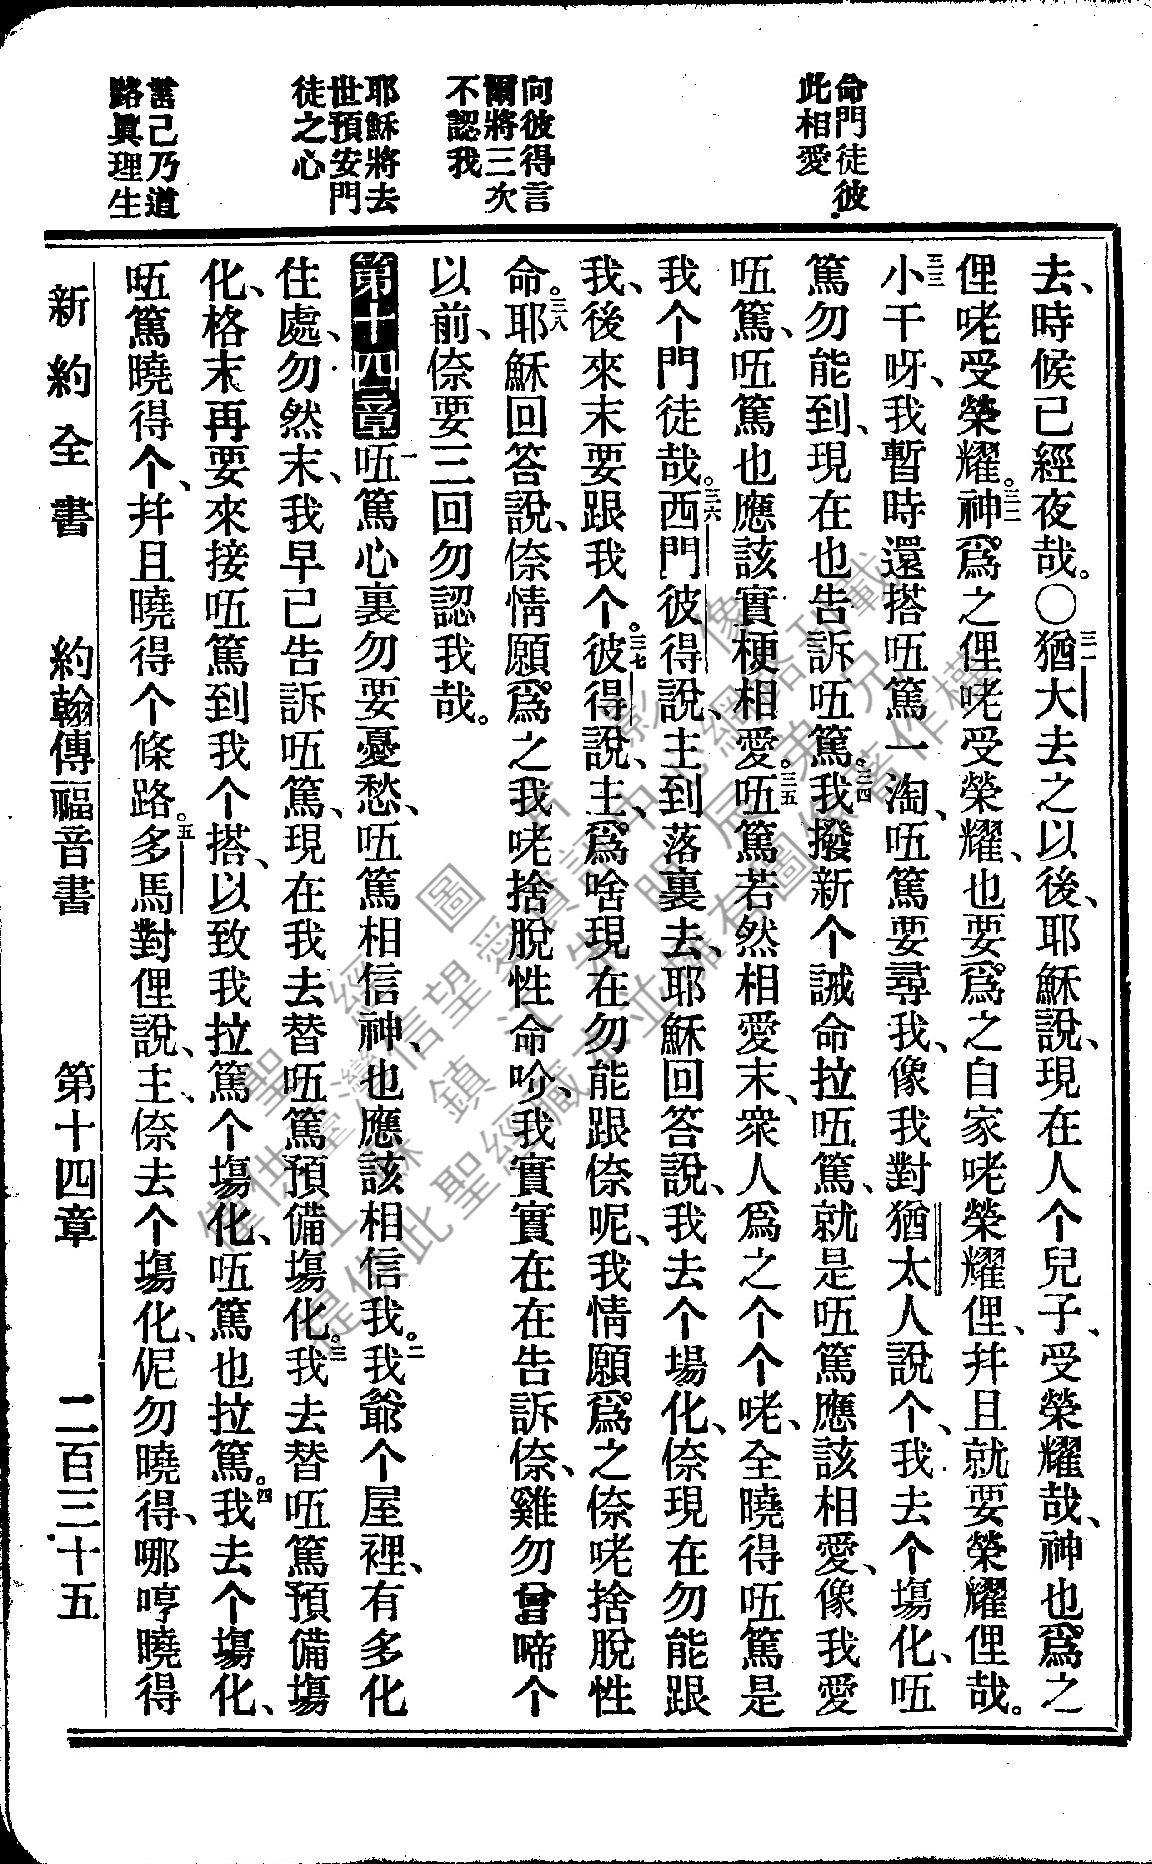 命門徒彼
此相愛
向彼得言
爾將三次
不認我
耶穌將去
世預安門
徒之心
言己乃道
路眞理生
去、時候已經夜哉。〇三一猶大去之以後、耶穌說、現在人个兒子、受榮耀哉、神也爲之
俚咾受榮耀。三二神爲之俚咾受榮耀、也要爲之自家咾榮耀俚、幷且就要榮耀俚哉。
三三小干呀、我暫時還搭㕶篤一淘、㕶篤要尋我、像我對猶太人說个、我去个塲化、㕶
篤勿能到、現在也告訴㕶篤。三四我撥新个誡命拉㕶篤、就是㕶篤應該相愛、像我愛
㕶篤、㕶篤也應該實梗相愛。三五㕶篤若然相愛末、衆人爲之个个咾、全曉得㕶篤是
我个門徒哉。三六西門彼得說、主到落裏去、耶穌回答說、我去个場化、倷現在勿能跟
我、後來末要跟我个。三七彼得說、主、爲啥現在勿能跟倷呢、我情願爲之倷咾捨脫性
命。三八耶穌回答說、倷情願爲之我咾捨脫性命吤、我實實在在告訴倷、雞勿曾啼个
以前、倷要三回勿認我哉。
第十四章一㕶篤心裏勿要憂愁、㕶篤相信神、也應該相信我。二我爺个屋裡、有多化
住處、勿然末、我早已告訴㕶篤、現在我去替㕶篤預備塲化。三我去替㕶篤預備塲
化、格末再要來接㕶篤到我个搭、以致我拉篤个塲化、㕶篤也拉篤。四我去个塲化、
㕶篤曉得个、幷且曉得个條路。五多馬對俚說、主、倷去个塲化、伲勿曉得、哪哼曉得
新約全書　約翰傳福音書　第十四章　二百三十五
聖經圖片影像
僅供臺灣信望愛資訊中心網路刊載
江蘇鎮江朱明辰弟兄
提供此聖經藏本並擁有圖像著作權